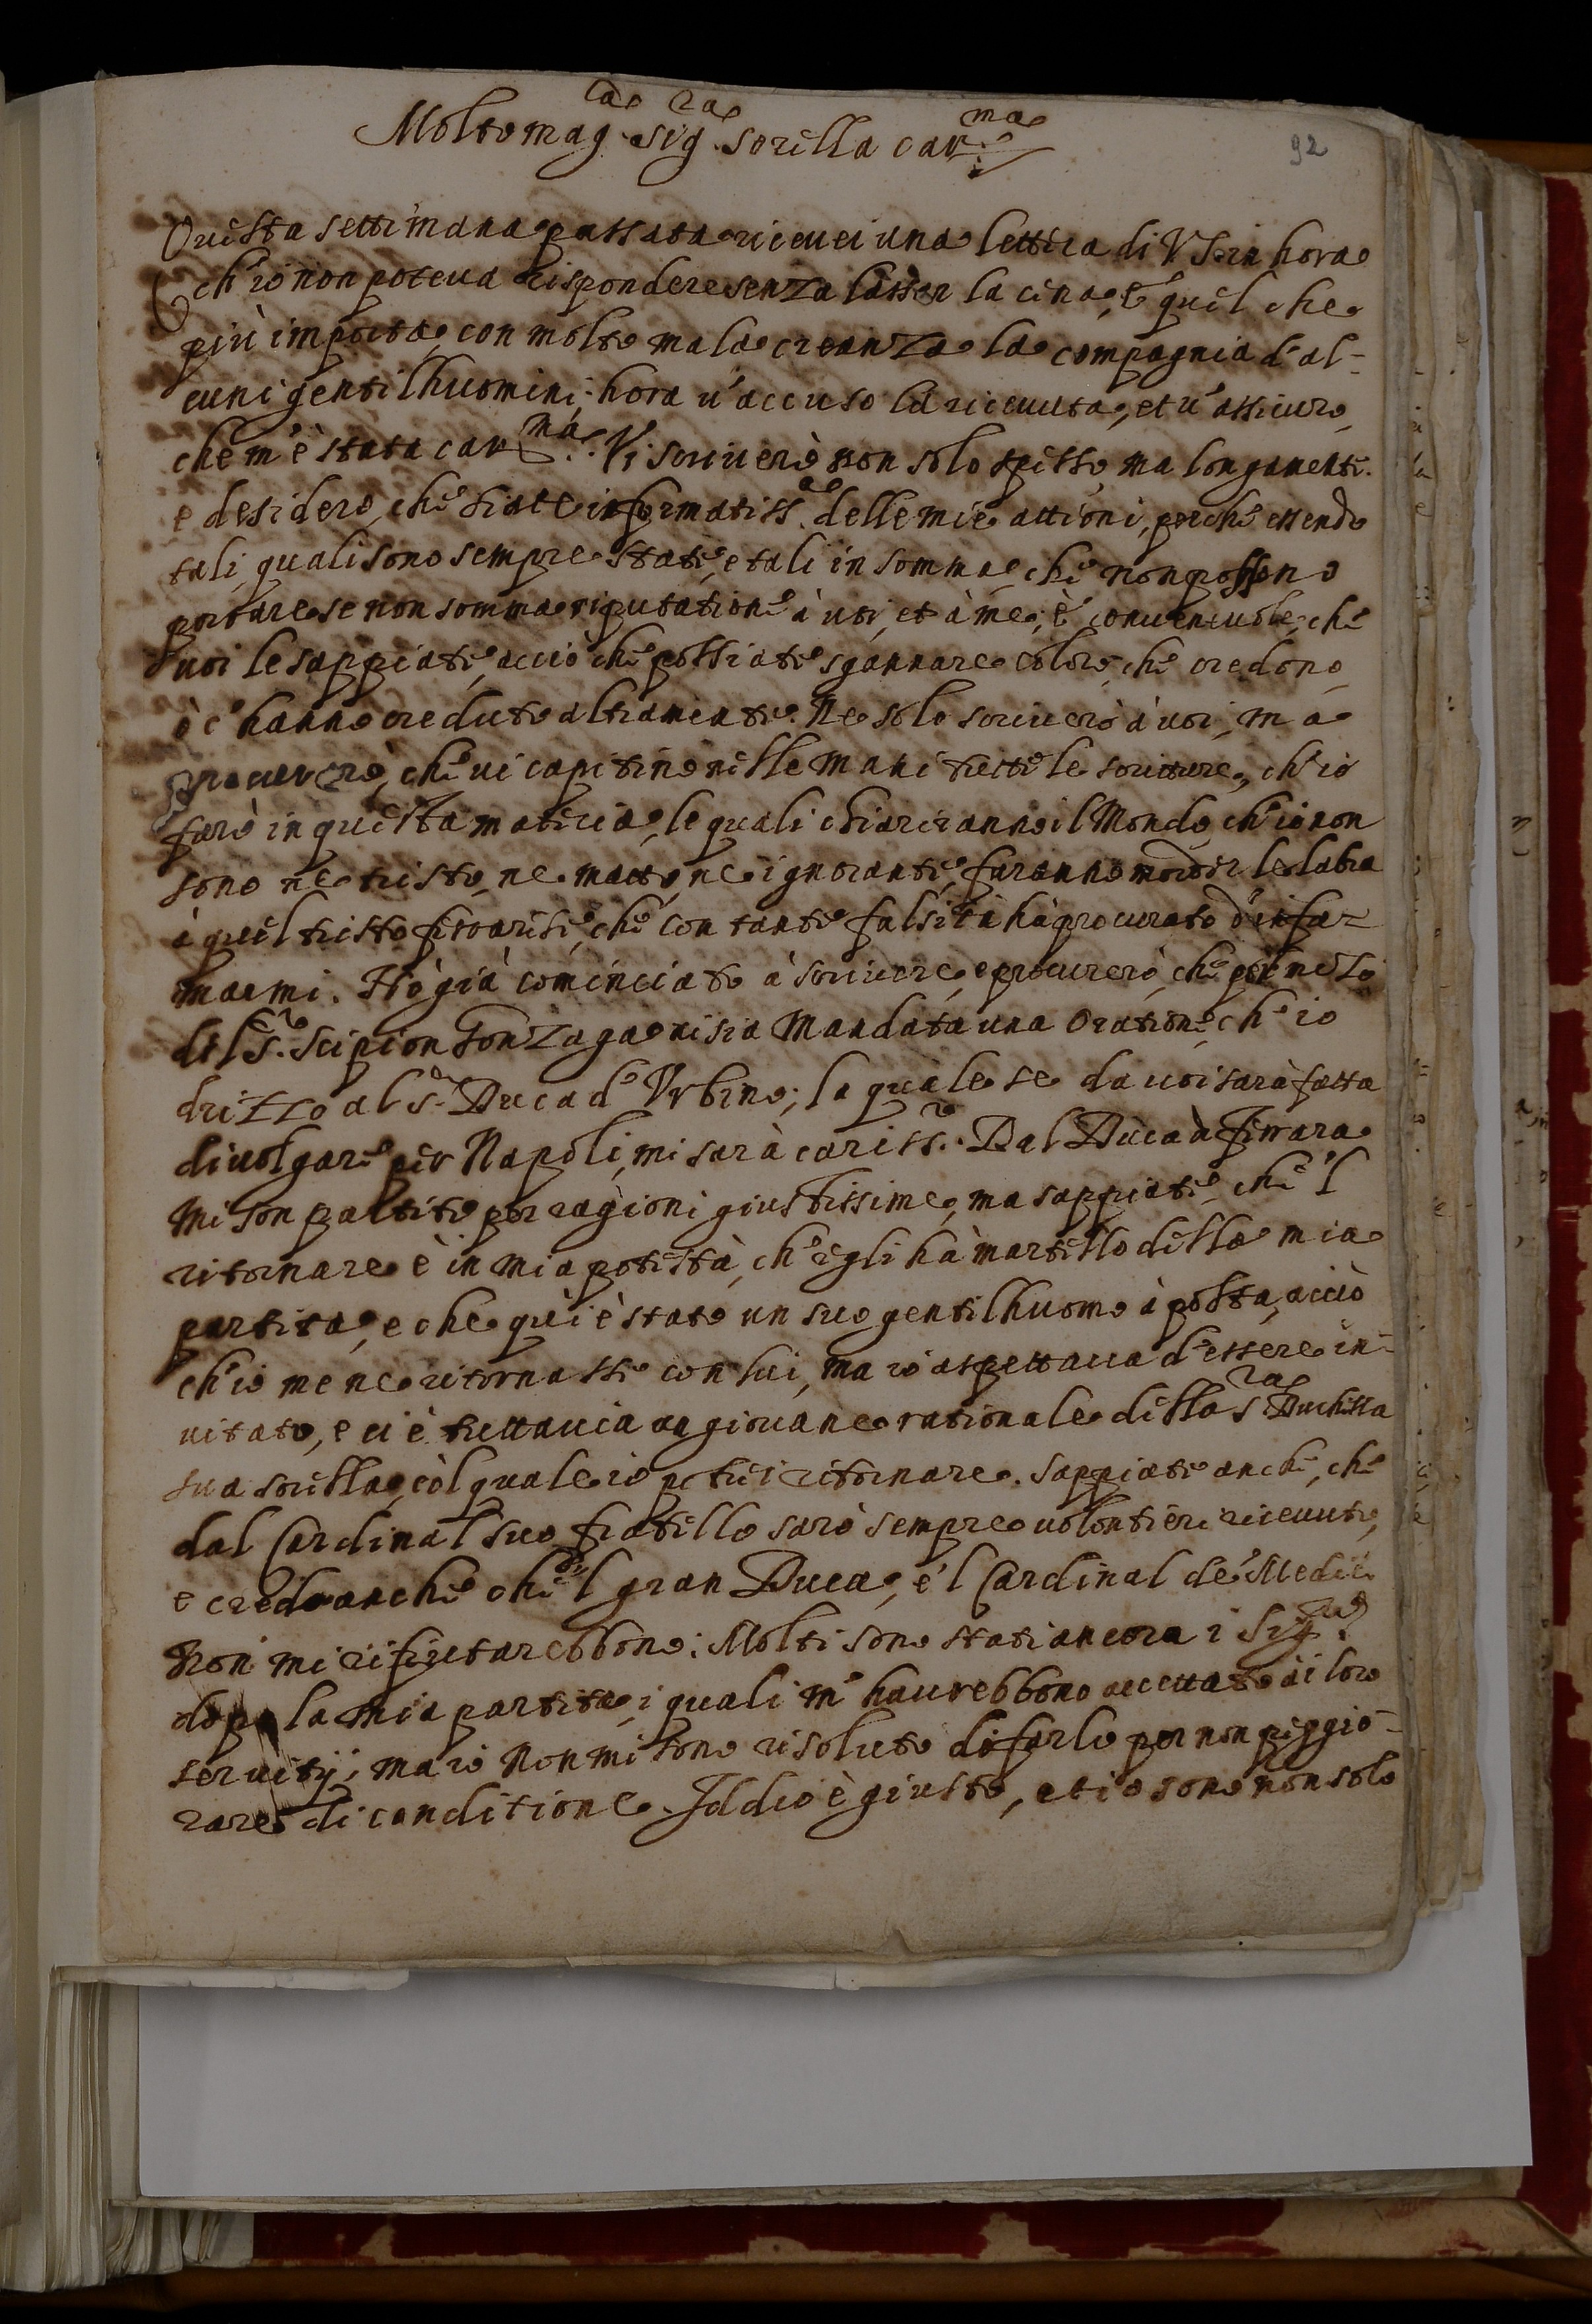 Molto mag.ca sig.ra sorella car.ma
92
Questa settimana passata riceuei una lettera di VS. in hora
ch'io non poteua rispondere senza lasser la cena, e' quel che
più importa, con molta mala creanza la compagnia d'al-
cuni gentilhuomini; hora u'accuso la riceuuta, et u'assicuro,
che m'è stata car.ma. Vi scriuerò non solo spesso, ma longamente.
e desidero, che siate informatiss.a delle mie attioni, perche essendo
tali, quali sono sempre state, e tali in somma, che non possono
portare se non somma riputatione à uoi, et à me, è conueneuole, che
uoi le sappiate, acciò che possiate sgannare coloro, che credono,
ò c'hanno creduto altramente. Ne solo scriuerò à uoi, ma
procurerò, che ui capitino nelle mani tutte le scritture, ch'io
farò in questa materia, le quali chiariranno il Mondo, ch'io non
sono ne tristo, ne matto, ne ignorante, faranno morder le labra
à quel tristo ferrarese, che con tante falsità hà procurato d'infa-
marmi. Hò già cominciato à scriuere, e procurerò, che per mezo
del S.r Scipion Gonzaga ui sia mandata una Oratione, ch'io
drizzo al S.r Duca d'Vrbino; la quale se da uoi sarà fatta
diuolgare per Napoli, mi sarà cariss.o. Dal Duca di Ferrara
mi son partito per ragioni giustissime, ma sappiate, che 'l
ritornare è in mia potestà, ch'egli hà martello della mia
partita, e che quì è stato un suo gentilhuomo à posta, acciò
ch'io me ne ritornassi con lui, ma io aspettaua d'essere in-
uitato, e ci è tuttauia un giouane rationale della S.ra Duchessa
sua sorella, col quale io potrei ritornare. Sappiate anche, che
dal Cardinal suo fratello sarò sempre uolontieri riceuuto,
e credo anche che 'l gran Duca, e 'l Cardinal de' Medici
non mi rifiutarebbono. Molti sono stati ancora i Sig.ri
dopo la mia partita, i quali m'haurebbono accettato ai loro
seruitij, ma io non mi sono risoluto di farlo per non peggio-
rare di conditione. Iddio è giusto, et io sono non solo